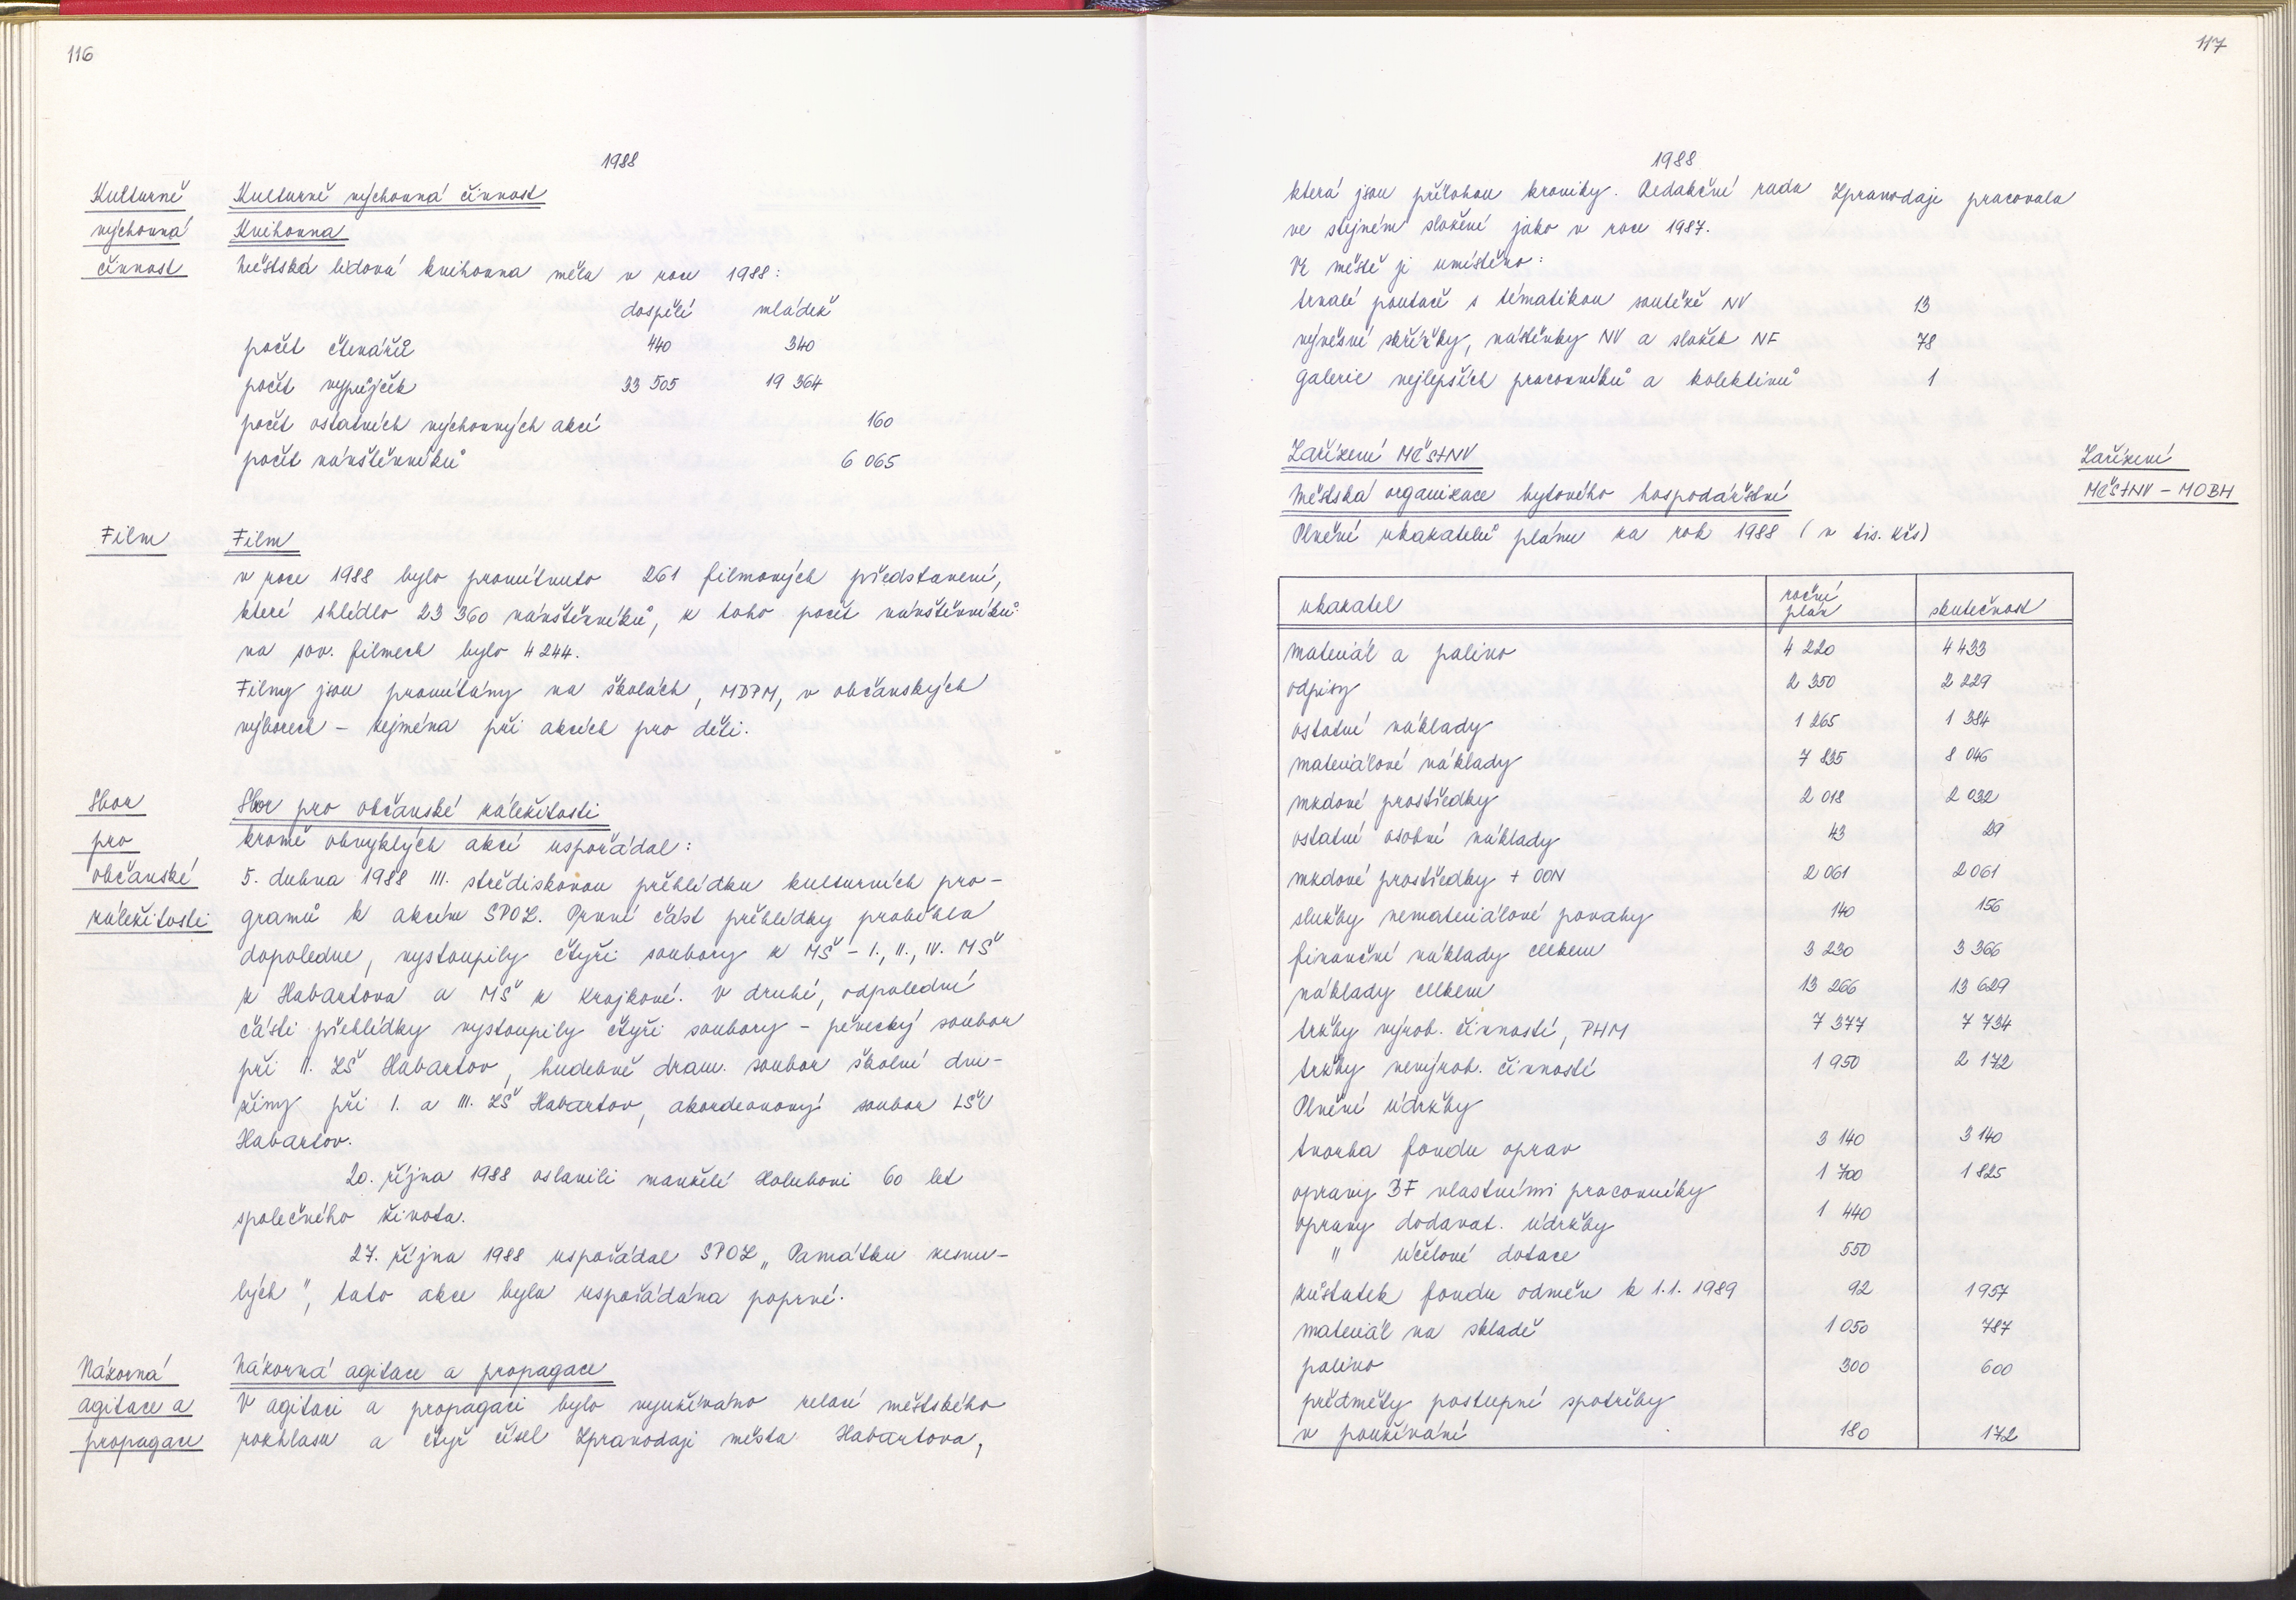 116
1988
Kulturně
výchovná
činnost
Kulturně výchovná činnost
Knihovna
Městská lidová knihovna měla v roce 1988:
dospělí mládež
počet čtenářů 440 340
počet výpůjček 33 505 19 364
počet ostatních výchovných akcí 160
počet návštěvníků 6 065
Film
Film
v roce 1988 bylo promítnuto 261 filmových představení,
které shlédlo 23 360 návštěvníků, z toho počet návštěvníků
na sov. filmech bylo 4 244.
Filmy jsou promítány na školách, MDPM, v občanských
výborech – zejména při akcích pro děti.
Sbor
pro
občanské
záležitosti
Sbor pro občanské záležitosti
kromě obvyklých akcí uspořádal:
5. dubna 1988 III. střediskovou přehlídku kulturních pro-
gramů k akcím SPOZ. První část přehlídky proběhla
dopoledne, vystoupily čtyři soubory z MŠ – I., II., IV. MŠ
z Habartova a MŠ z Krajkové. V druhé, odpolední
části přehlídky vystoupily čtyři soubory – pěvecký soubor
při II. ZŠ Habartov, hudebně dram. soubor školní dru-
žiny při I. a III. ZŠ Habartov, akordeonový soubor LŠU
Habartov.
20. října 1988 oslavili manželé Holubovi 60 let
společného života.
27. října 1988 uspořádal SPOZ „Památku zesnu-
lých", tato akce byla uspořádána poprvé.
Názorná
agitace a
propagace
Názorná agitace a propagace
V agitaci a propagaci bylo využíváno relací městského
rozhlasu a čtyř čísel Zpravodaje města Habartova,
117
1988
která jsou přílohou kroniky. Redakční rada Zpravodaje pracovala
ve stejném složení jako v roce 1987.
Ve městě je umístěno:
trvalé poutače s tématikou soutěže NV 13
vývěsné skříňky, nástěnky NV a složek NF 78
galerie nejlepších pracovníků a kolektivů 1
Zařízení MěstNV
Zařízení
MěstNV – MOBH
Městská organizace bytového hospodářství
Plnění ukazatelů plánu za rok 1988 (v tis. Kčs)
ukazatel roční plán skutečnost
materiál a palivo 4 220 4 433
odpisy 2 350 2 229
ostatní náklady 1 265 1 384
materiálové náklady 7 835 8 046
mzdové prostředky 2 018 2 032
ostatní osobní náklady 43 29
mzdové prostředky + OON 2 061 2 061
služby nemateriálové povahy 140 156
finanční náklady celkem 3 230 3 366
náklady celkem 13 266 13 629
tržby výrob. činností, PHM 7 377 7 734
tržby nevýrob. činností 1 950 2 172
Plnění údržby
tvorba fondu oprav 3 140 3 140
opravy BF vlastními pracovníky 1 700 1 825
opravy dodavat. údržby 1 440
" účelové dotace 550
zůstatek fondu odměn k 1.1. 1989 92 1957
materiál na skladě 1 050 787
palivo 300 600
předměty postupné spotřeby
v používání 180 172